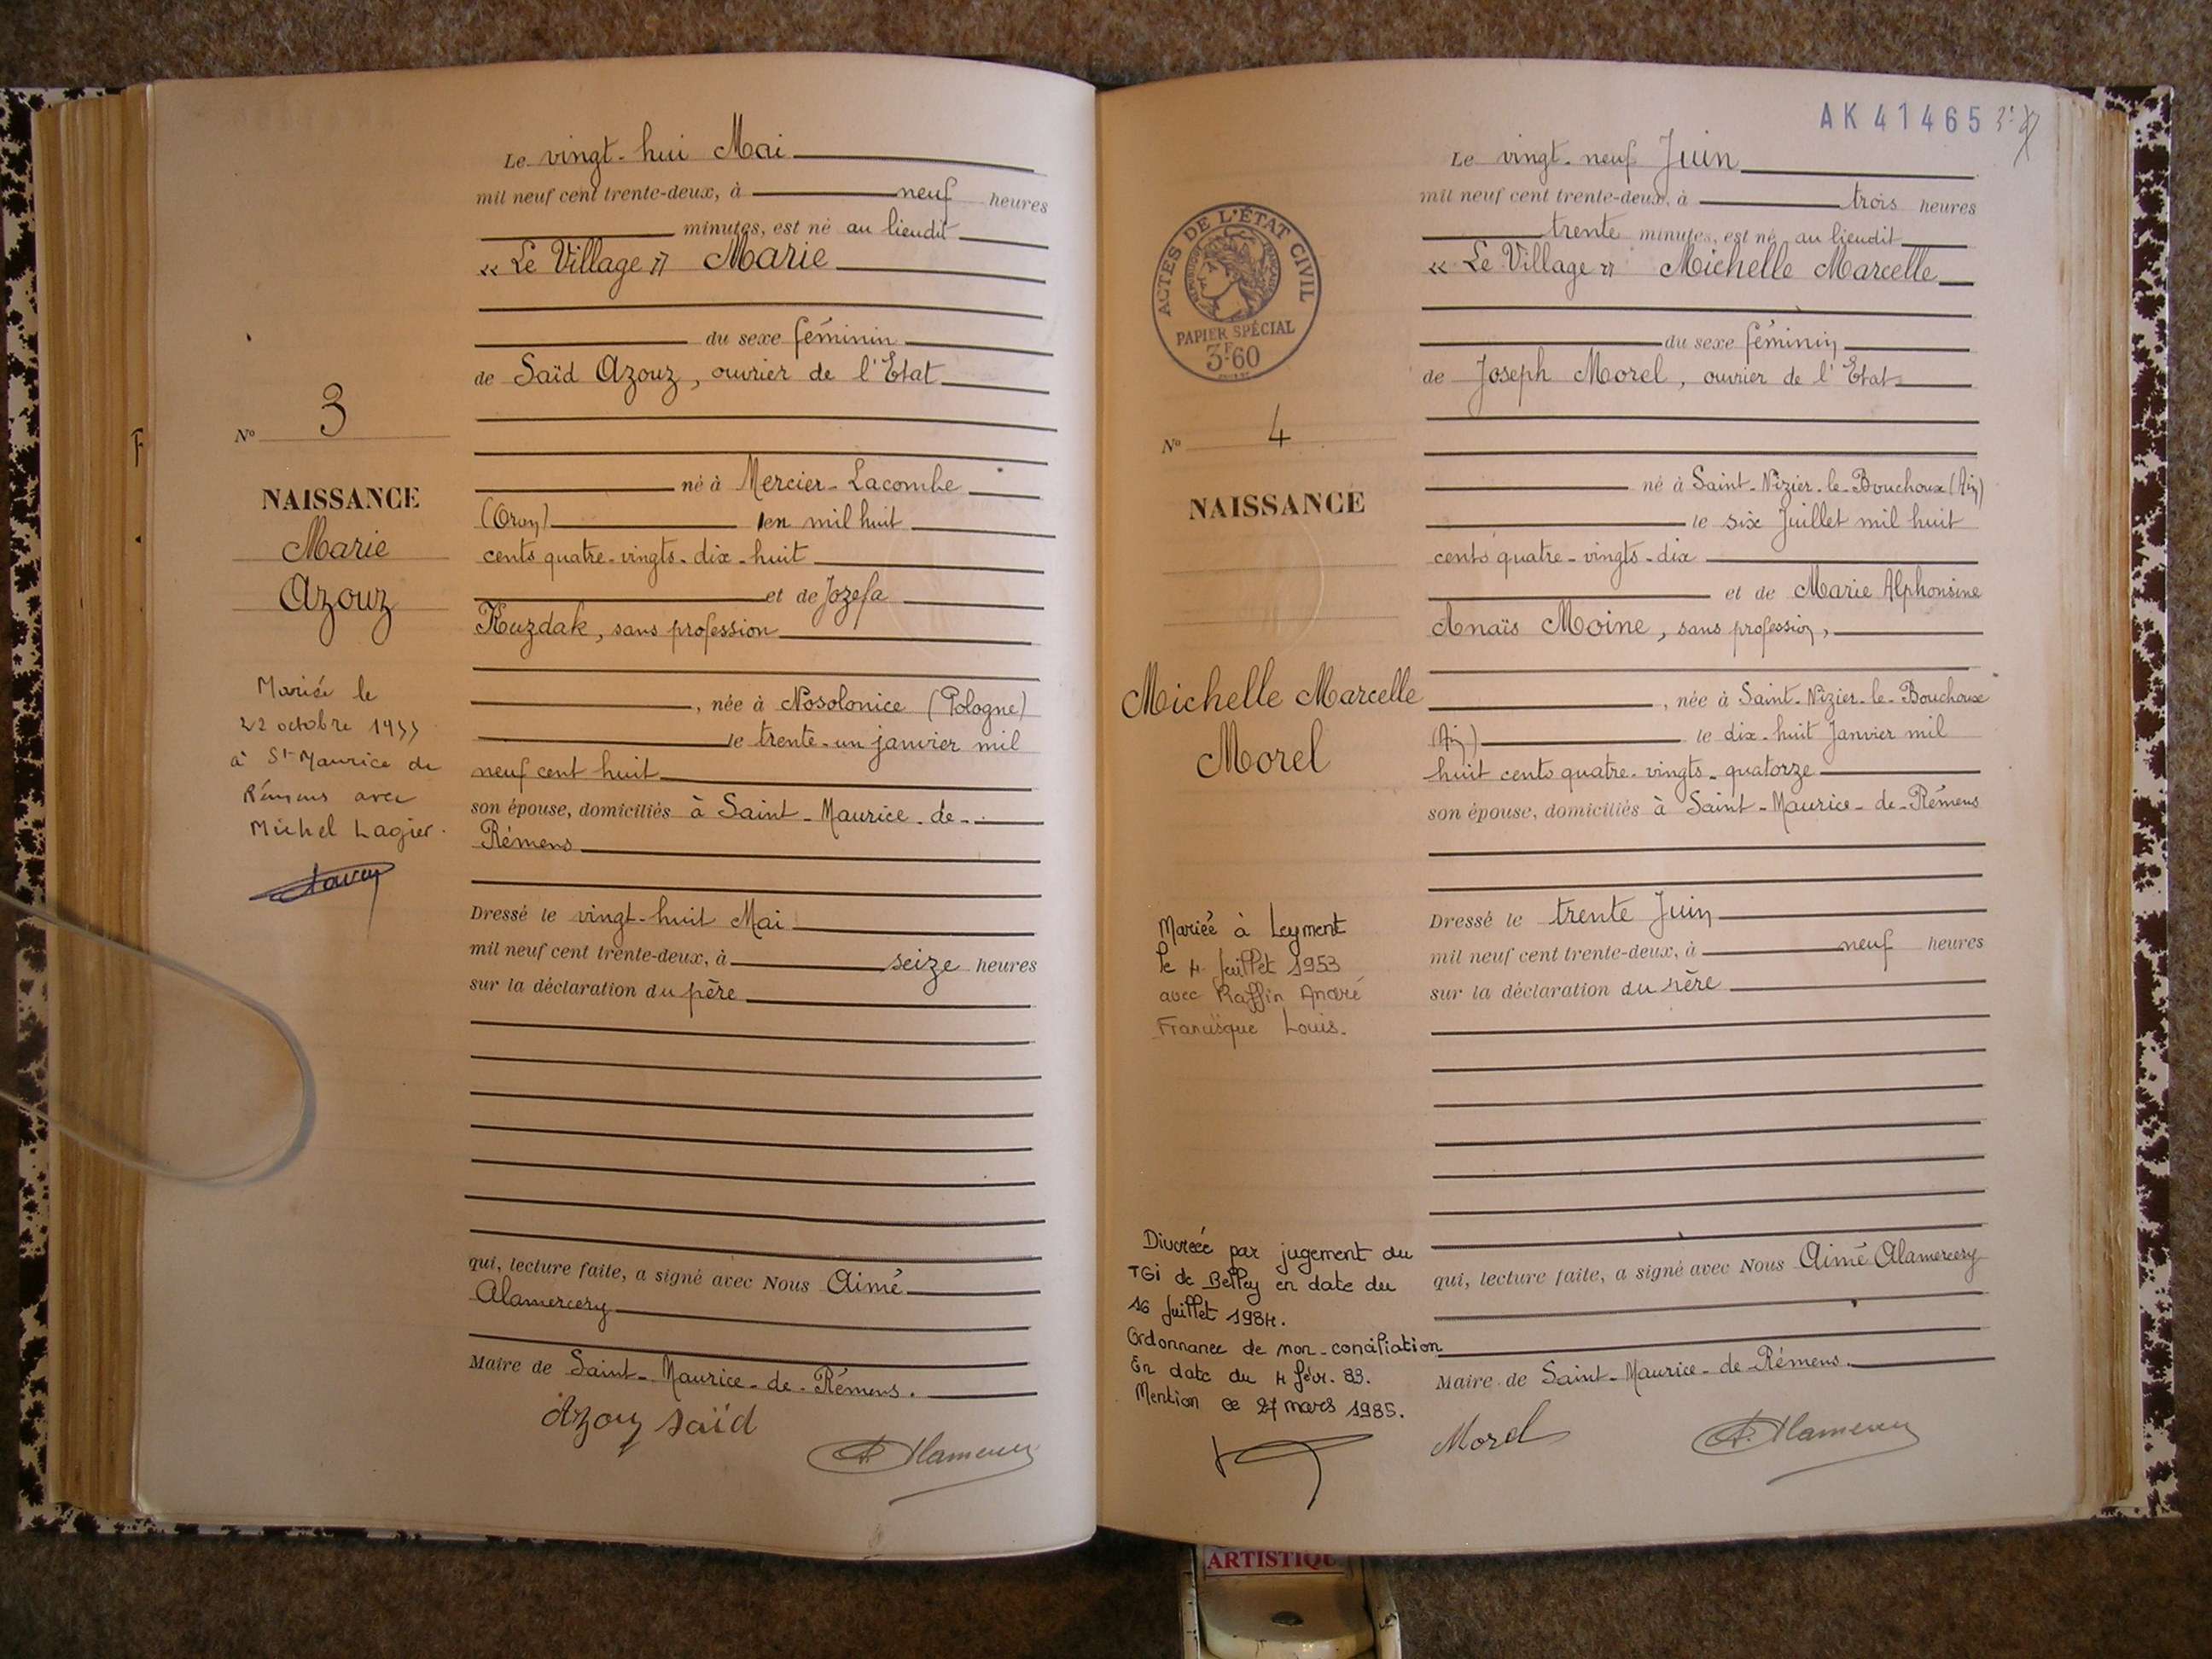 Le vingt-hui Mai
mil neuf cent trente-deux, à neuf heures
minutes, est né au lieudit
« Le Village » Marie
du sexe féminin
de Saïd Azouz, ouvrier de l'Etat
né à Mercier-Lacombe
(Oran) en mil huit
cents quatre-vingts-dix-huit
et de Jozefa
Kuzdak, sans profession
, née à Nosolonice (Pologne)
le trente-un janvier mil
neuf cent huit
son épouse, domiciliés à Saint-Maurice-de-
Rémens
Dressé le vingt-huit Mai
mil neuf cent trente-deux, à seize heures
sur la déclaration du père
qui, lecture faite, a signé avec Nous Aimé
Alamercery
Maire de Saint-Maurice-de-Rémens.
Azouz saïd
N° 3
NAISSANCE
Marie
Azouz
Mariée le
22 octobre 1955
à St Maurice de
Rémens avec
Michel Lagier.
AK 41465
Le vingt-neuf Juin
mil neuf cent trente-deux, à trois heures
trente minutes, est né au lieudit
« Le Village » Michelle Marcelle
du sexe féminin
de Joseph Morel, ouvrier de l'Etat
né à Saint-Nizier-le-Bouchoux (Ain)
le six Juillet mil huit
cents quatre-vingts-dix
et de Marie Alphonsine
Anaïs Moine, sans profession,
, née à Saint-Nizier-le-Bouchoux
(Ain) le dix-huit Janvier mil
huit cents quatre-vingts-quatorze
son épouse, domiciliés à Saint-Maurice-de-Rémens
Dressé le trente Juin
mil neuf cent trente-deux, à neuf heures
sur la déclaration du père
qui, lecture faite, a signé avec Nous Aimé Alamercery
Maire de Saint-Maurice-de-Rémens.
Morel
A. Alamercery
ACTES DE L'ÉTAT CIVIL
PAPIER SPÉCIAL
3F60
N° 4
NAISSANCE
Michelle Marcelle
Morel
Mariée à Leyment
le 4 Juillet 1953
avec Raffin André
Francisque Louis.
Divorcée par jugement du
TGI de Belley en date du
16 Juillet 1984.
Ordonnance de non-conciliation
En date du 4 févr. 83.
Mention ce 27 mars 1985.
ARTISTIQUE